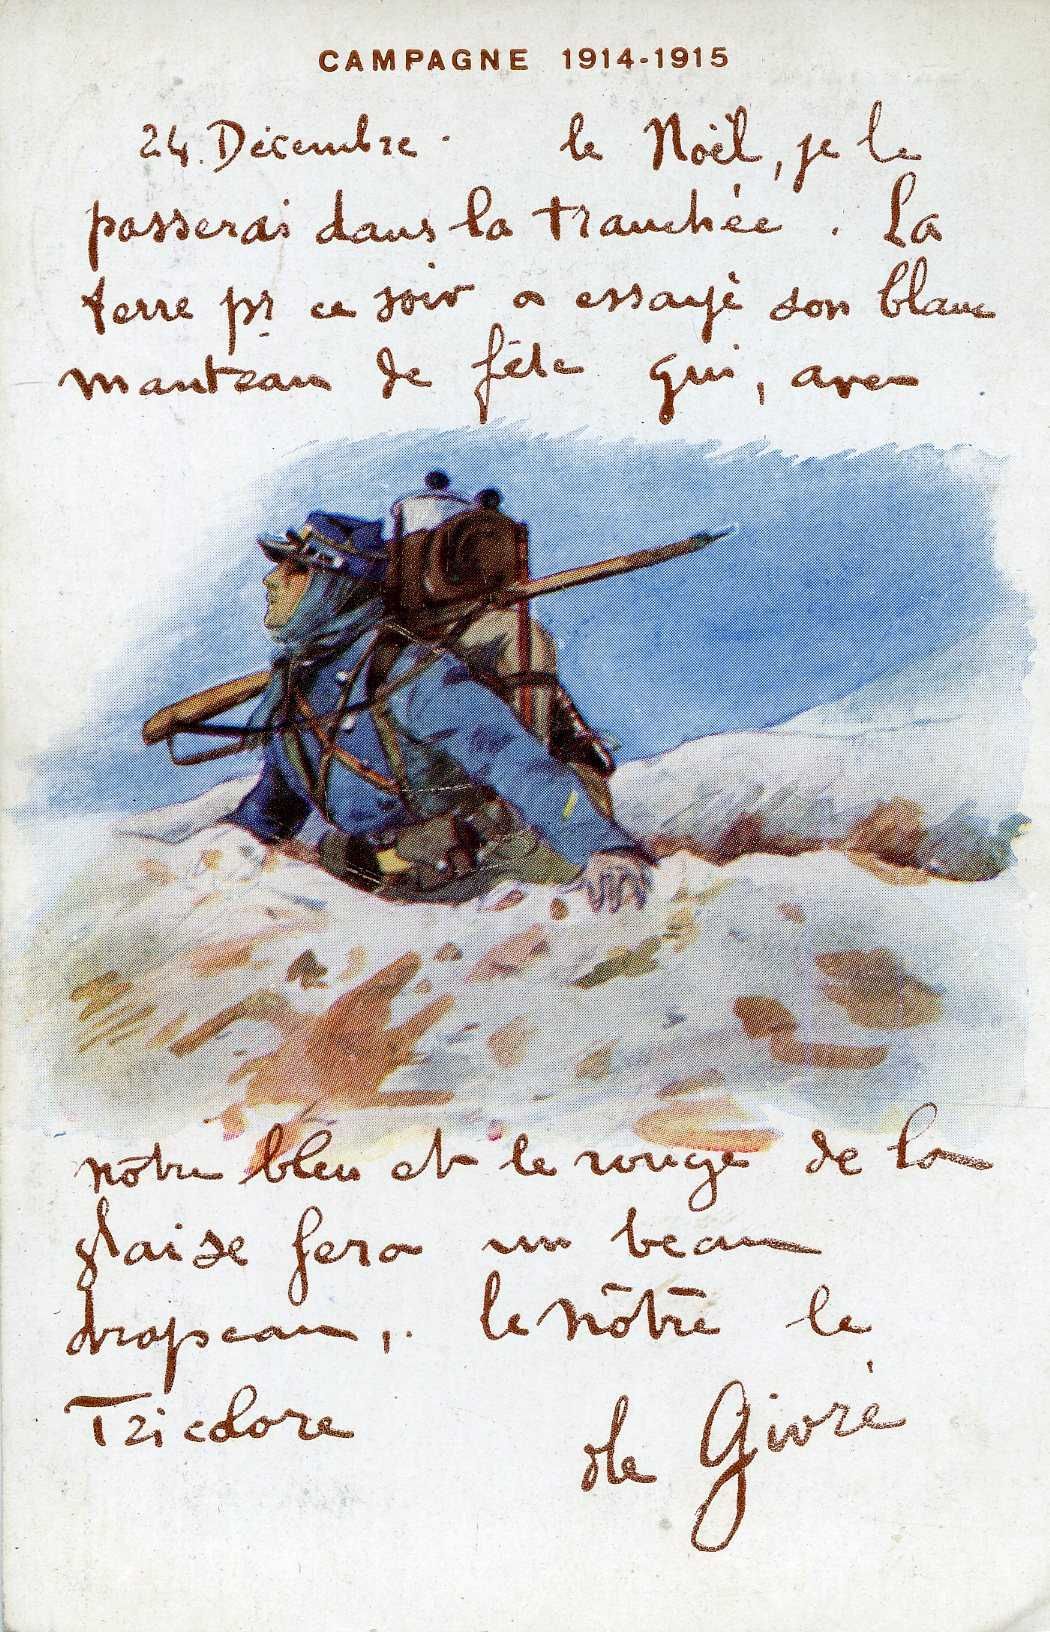 CAMPAGNE 1914-1915
24. Décembre. le Noël, je le
passerai dans la tranchée. La
terre pr ce soir a essayé son blanc
manteau de fête qui, avec
nôtre bleu et le rouge de la
glaise fera un beau
drapeau,. le nôtre le
Tricolore
de Givré